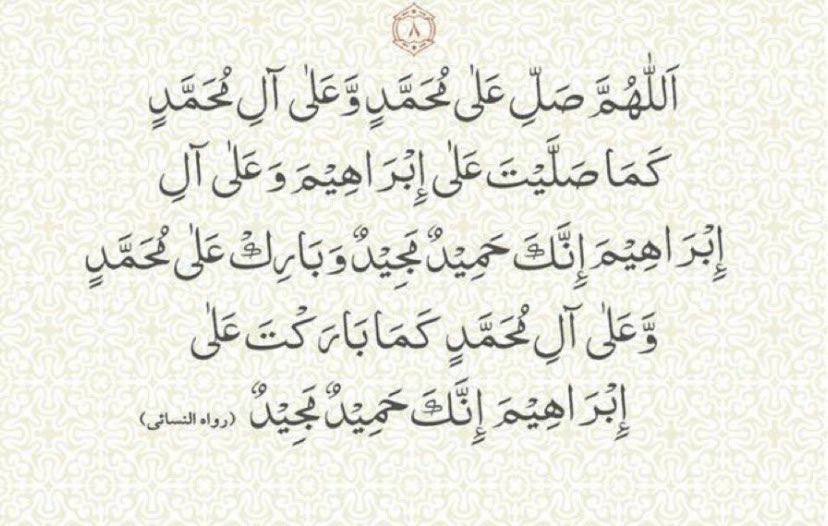 ٨
اَللّٰهُمَّ صَلِّ عَلٰى مُحَمَّدٍ وَّعَلٰى آلِ مُحَمَّدٍ
كَمَا صَلَّيْتَ عَلٰى إِبْرَاهِيْمَ وَعَلٰى آلِ
إِبْرَاهِيْمَ إِنَّكَ حَمِيْدٌ مَّجِيْدٌ وَبَارِكْ عَلٰى مُحَمَّدٍ
وَّعَلٰى آلِ مُحَمَّدٍ كَمَا بَارَكْتَ عَلٰى
إِبْرَاهِيْمَ إِنَّكَ حَمِيْدٌ مَّجِيْدٌ (رواه النسائى)